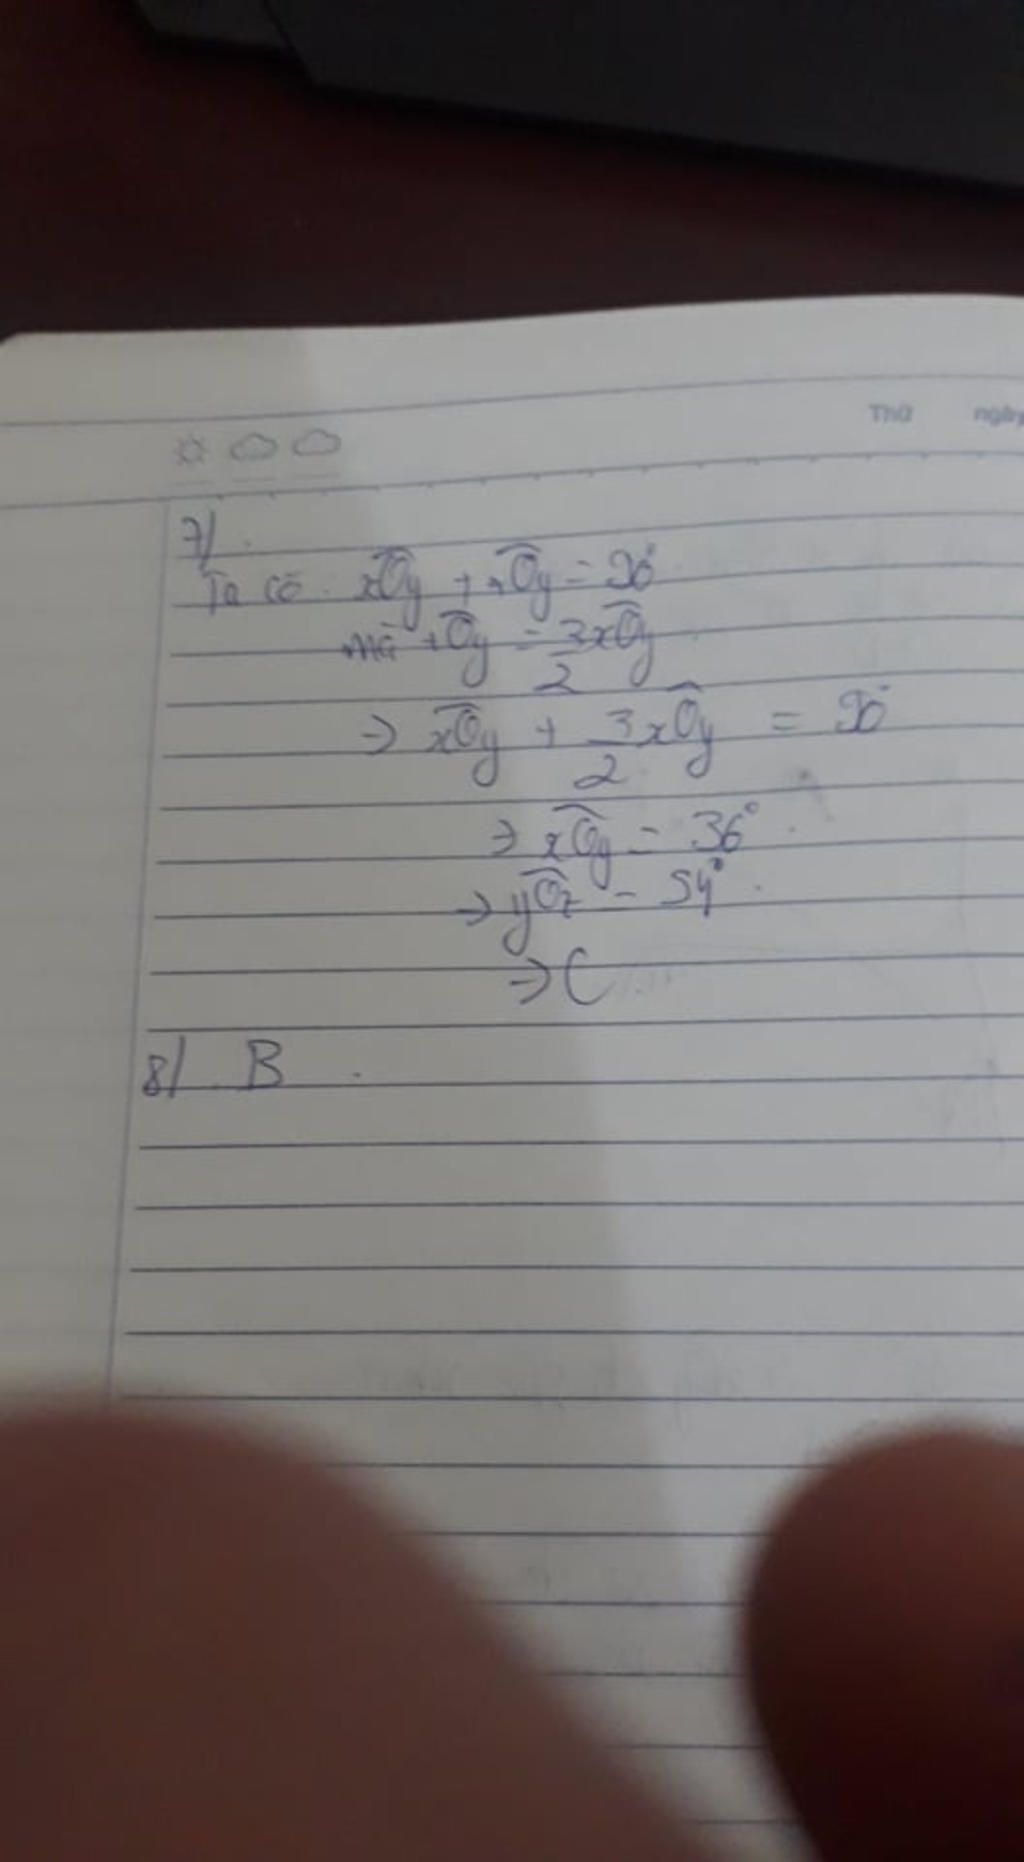 Thứ ngày
7/.
Ta có xOy + tOy = 90°
mà tOy = 3xOy/2
=> xOy + 3/2 xOy = 90°
=> xOy = 36°.
=> yOz = 54°.
=> C
8/ B.